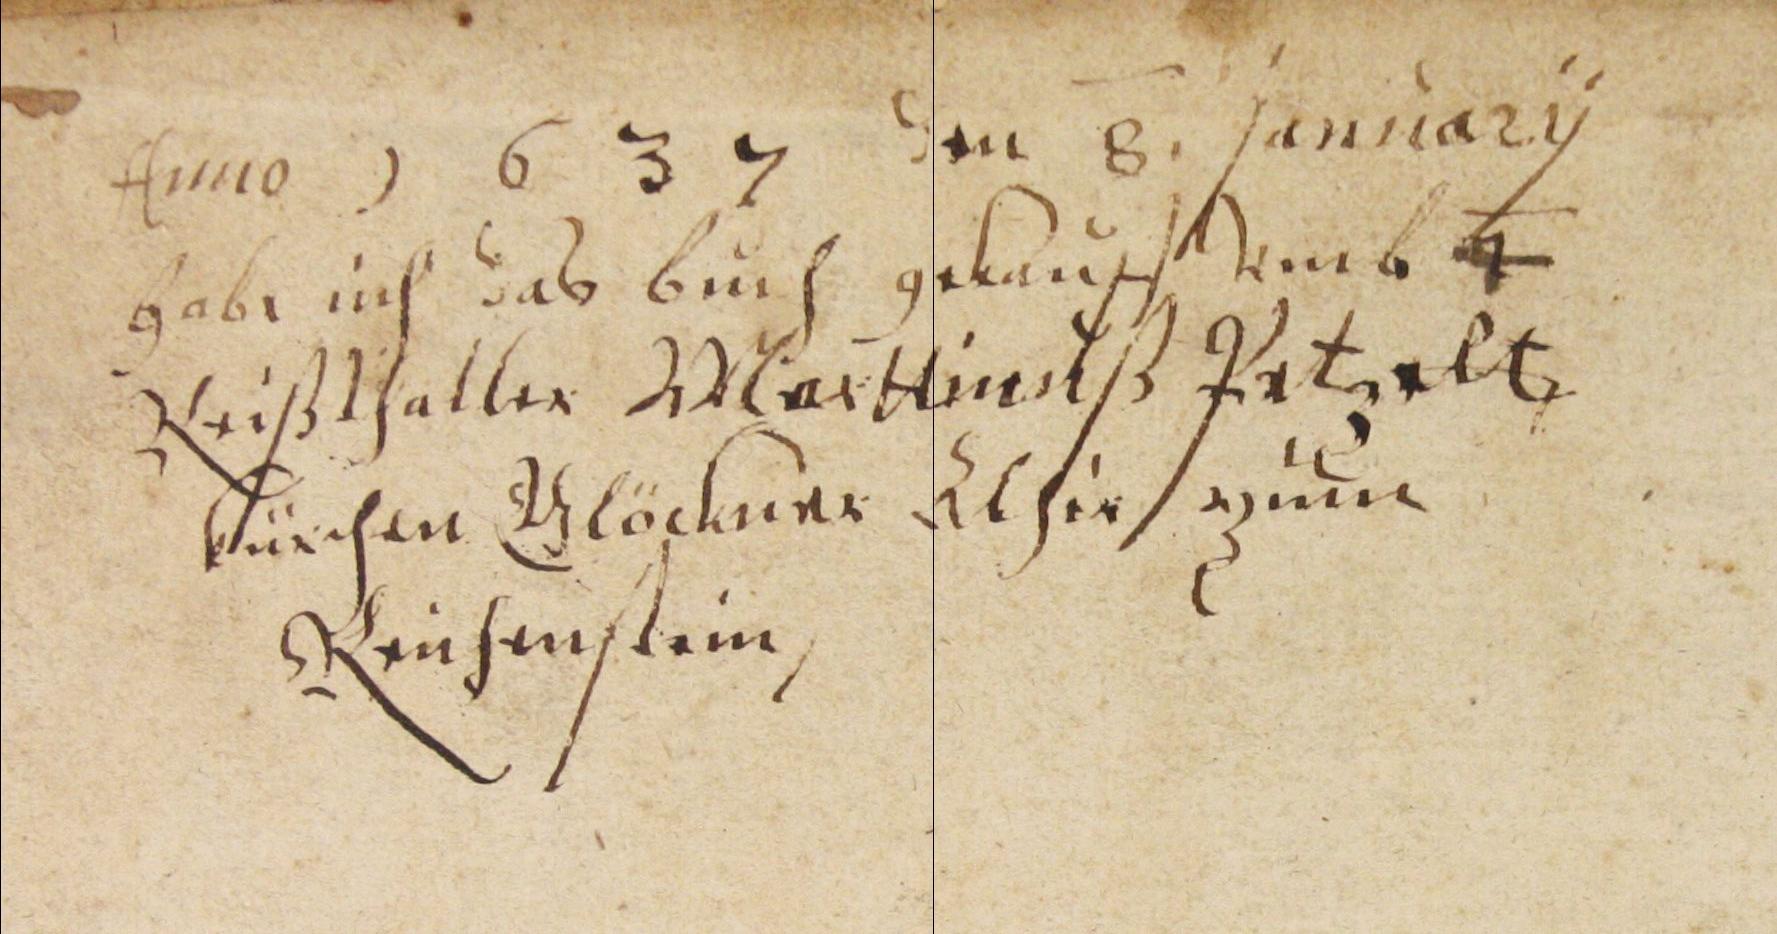 Anno 1637 den 8. January
habe ich das buch gekaufft umb 4
Reißthaller Marttinuß Petzelt
kürchen Glöckner Alhir zum
Reichenstein